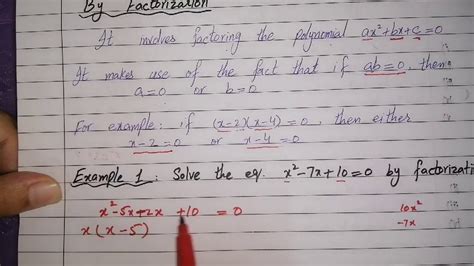 By Factorization
It involves factoring the polynomial ax²+bx+c=0
It makes use of the fact that if ab=0, then
a=0 or b=0
For example: if (x-2)(x-4)=0, then either
x-2=0 or x-4=0
Example 1: Solve the eq. x²-7x+10=0 by factorizati
x²-5x+2x +10 =0
10x²
x(x-5)
-7x